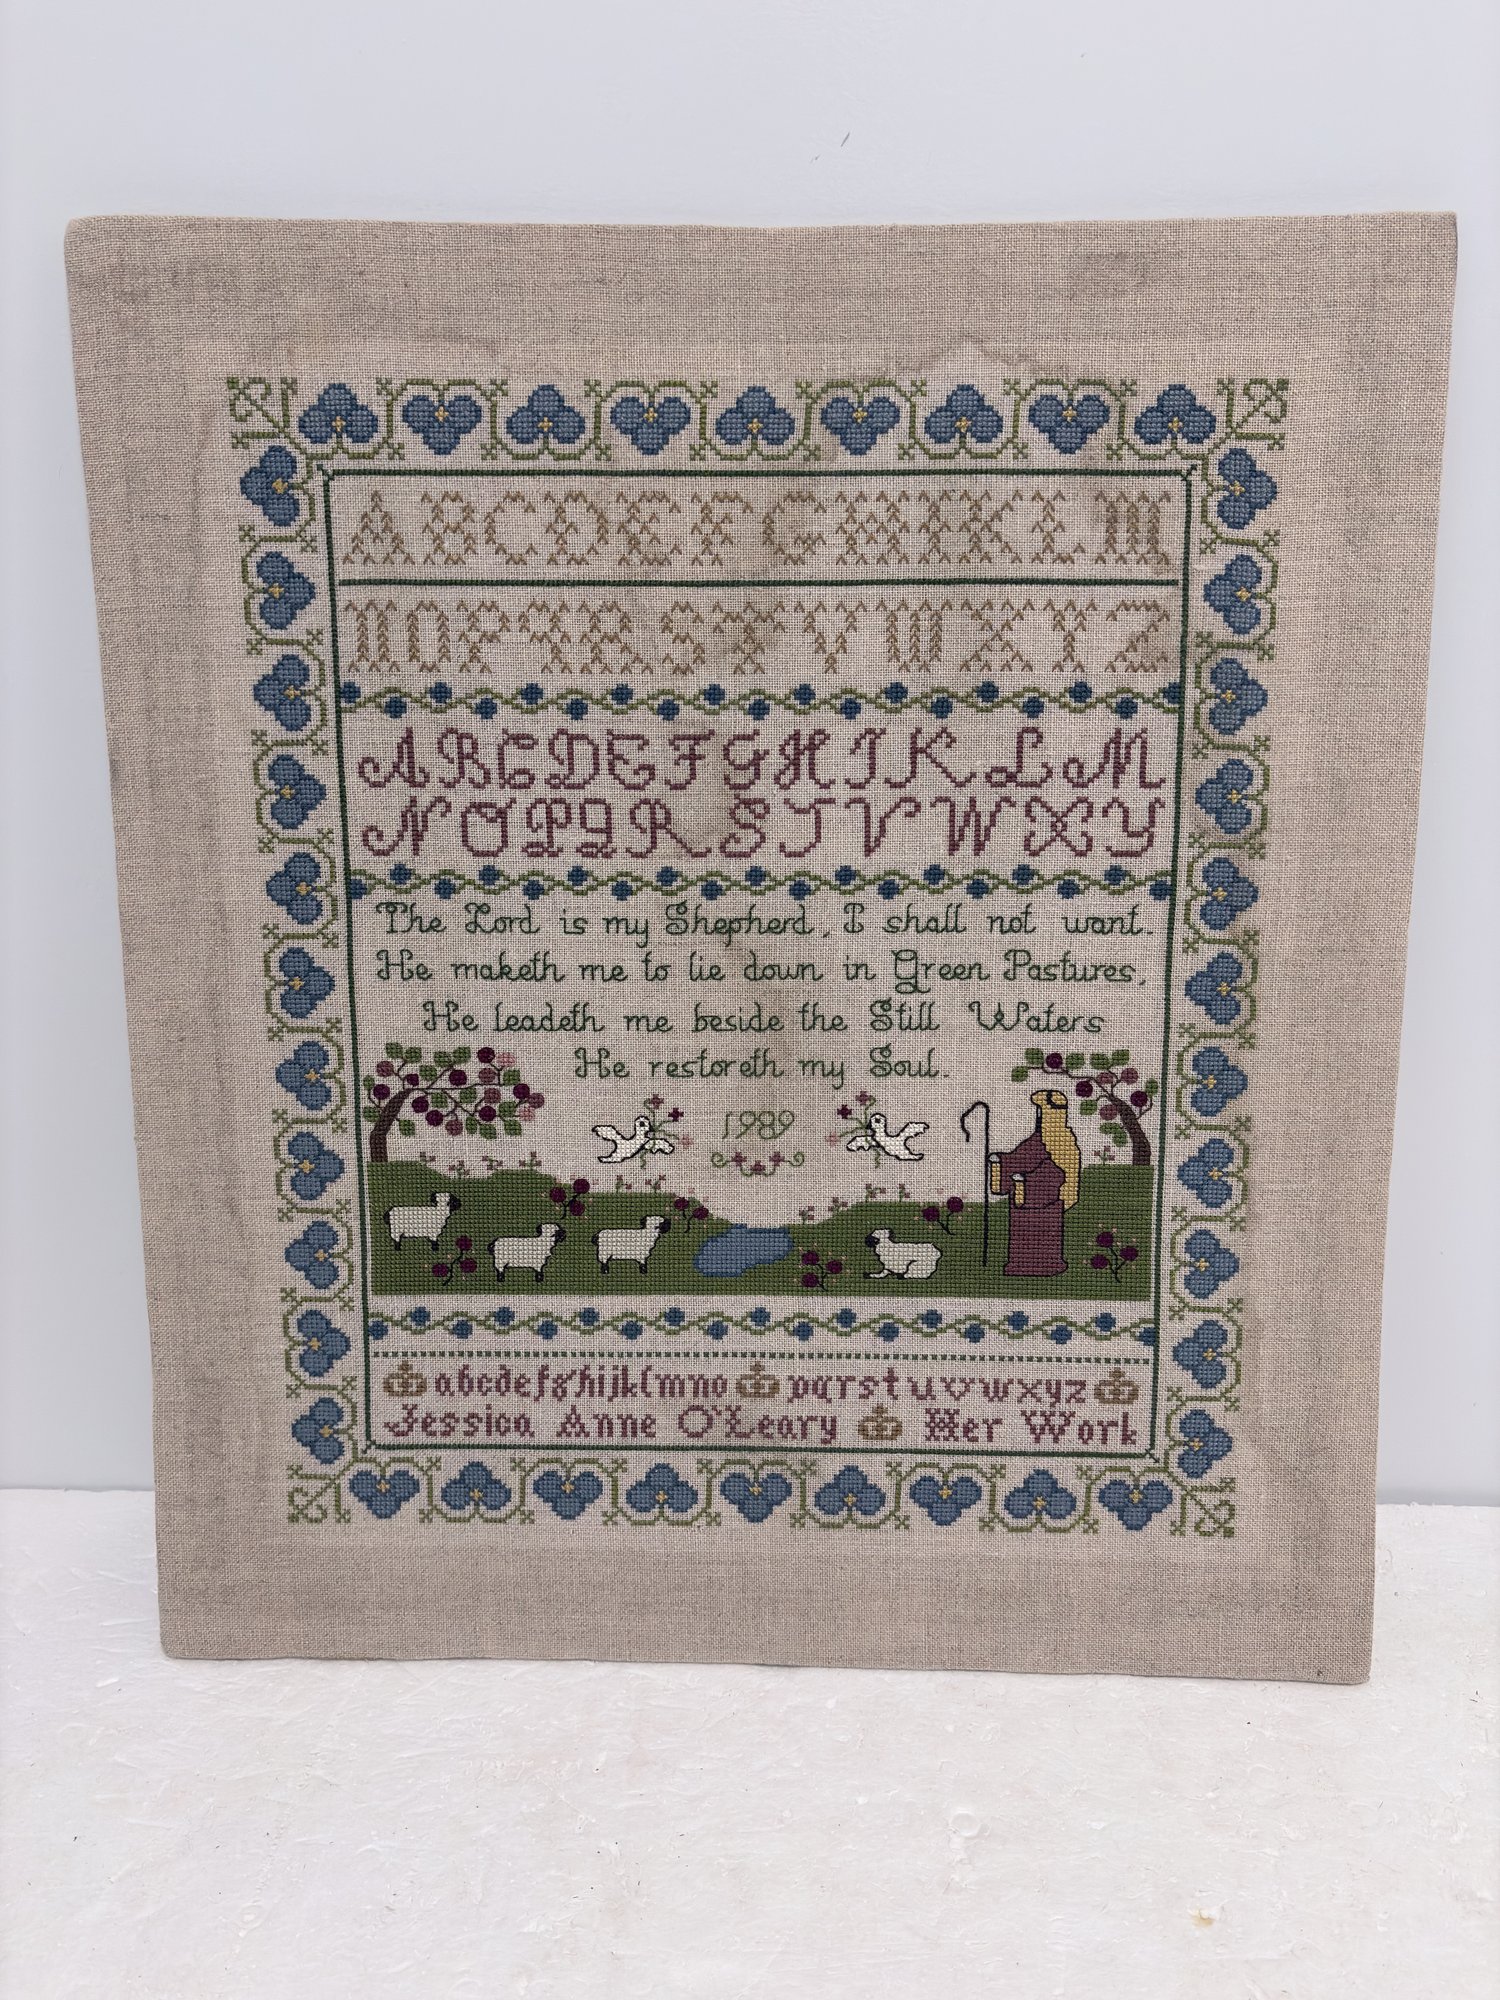 ABCDEFGHIKLM
NOPQRSTVWXYZ
ABCDEFGHIKLM
NOPQRSTVWXY
The Lord is my Shepherd, I shall not want.
He maketh me to lie down in Green Pastures,
He leadeth me beside the Still Waters
He restoreth my Soul.
1989
abcdefghijklmno pqrstuvwxyz
Jessica Anne O'Leary Her Work